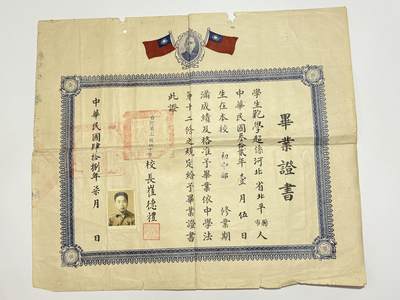 畢業證書
學生範學超係河北省北平縣市人
中華民國叁拾貳年壹月伍日
生在本校初中部修業期
滿成績及格准予畢業依中學法
第十二條之規定給予畢業證書
此證
校長崔德禮
中華民國肆拾捌年柒月日